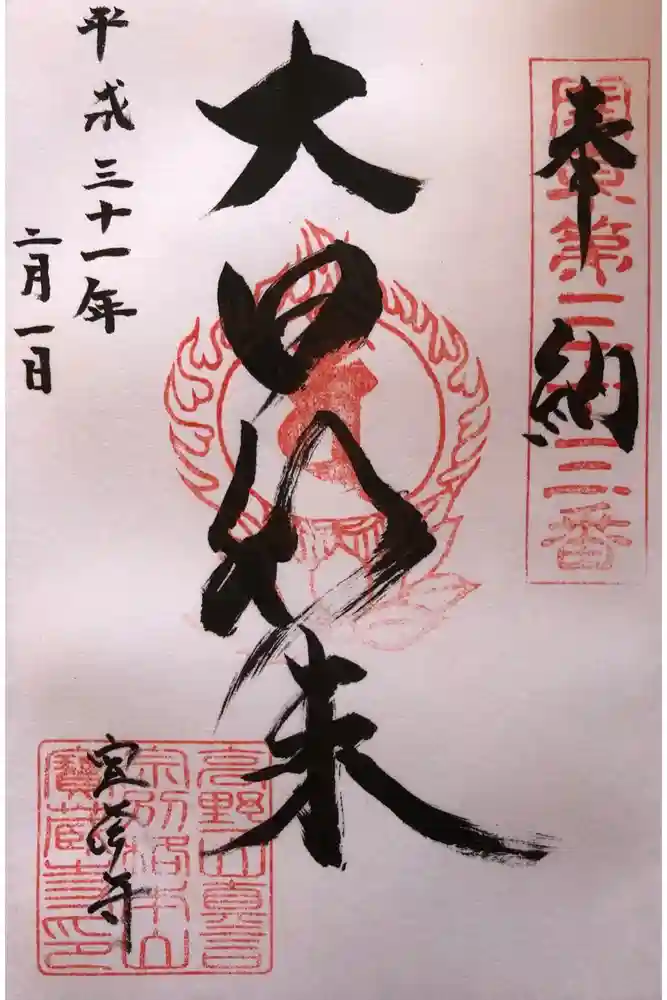 奉納
關東第二十三番
大日如来
高野山真言
宗別格本山
寶蔵寺印
宝蔵寺
平成三十一年
二月一日